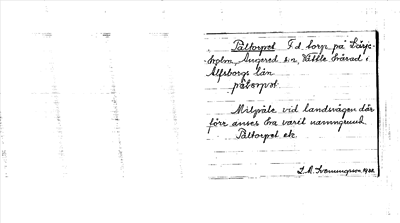 Påltorpet F.d. torp på Lärje-
holm, Angered s:n, Vättle härad i
Älfsborgs län
påltorpet
Milpåle vid landsvägen där
förr anses ha varit namngrund.
Påltorpet etc.
1922